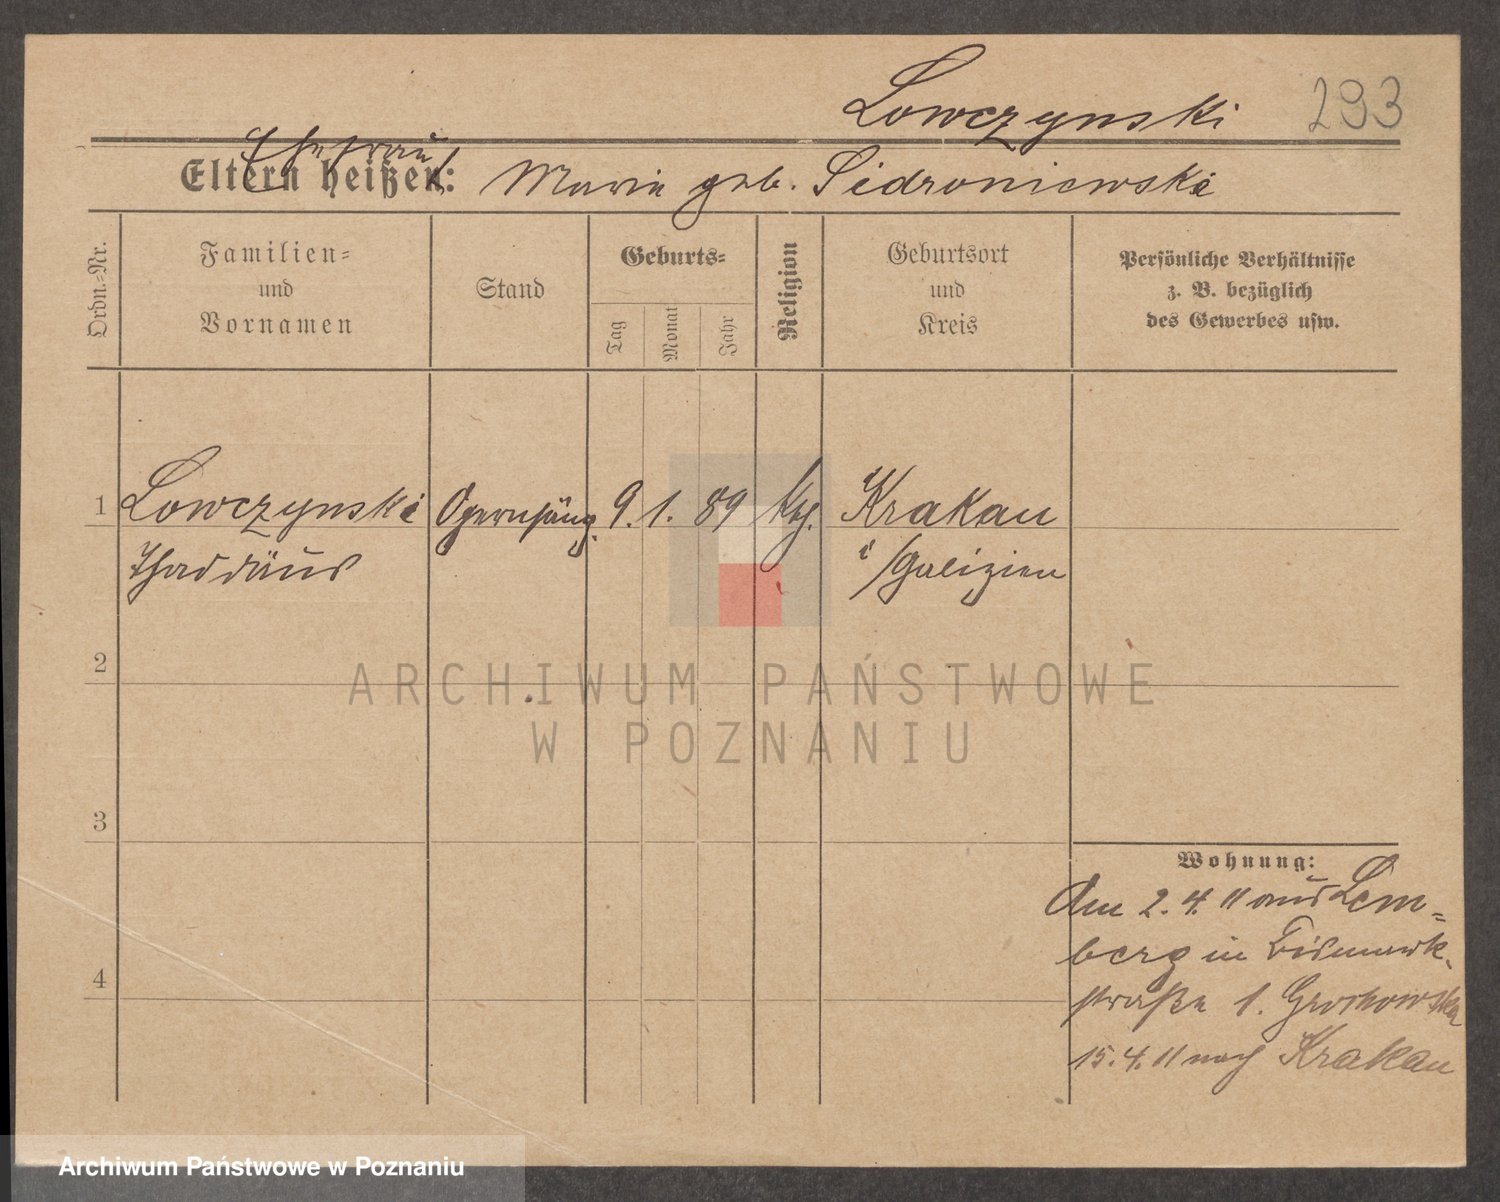 Lowczynski 293
Ehefrau
Eltern heißen: Maria geb. Sidroniewski
Ordn.-Nr.
Familien-
und
Vornamen
Stand
Geburts-
Tag
Monat
Jahr
Religion
Geburtsort
und
Kreis
Persönliche Verhältnisse
z. B. bezüglich
des Gewerbes usw.
1 Lowczynski Opernsäng. 9. 1. 89 kth. Krakau
Thaddäus i/Galizien
2
ARCHIWUM PAŃSTWOWE
W POZNANIU
3
Wohnung:
Am 2. 4. 11 aus Lem=
berg in Bismark-
4
straße 1. Grochowska
15. 4. 11 nach Krakau
Archiwum Państwowe w Poznaniu